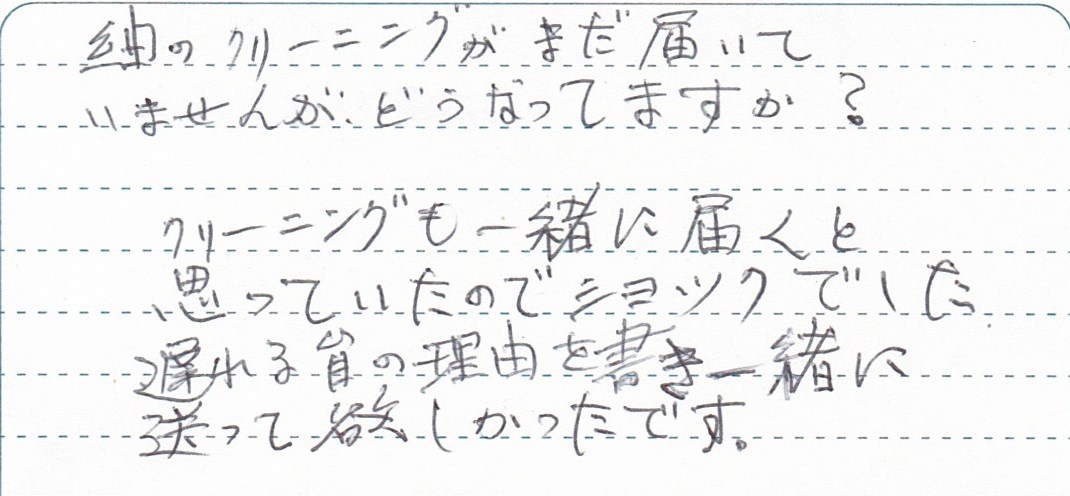 紬のクリーニングがまだ届いて
いませんが、どうなってますか?
クリーニングも一緒に届くと
思っていたのでショックでした
遅れる旨の理由を書き一緒に
送って欲しかったです。